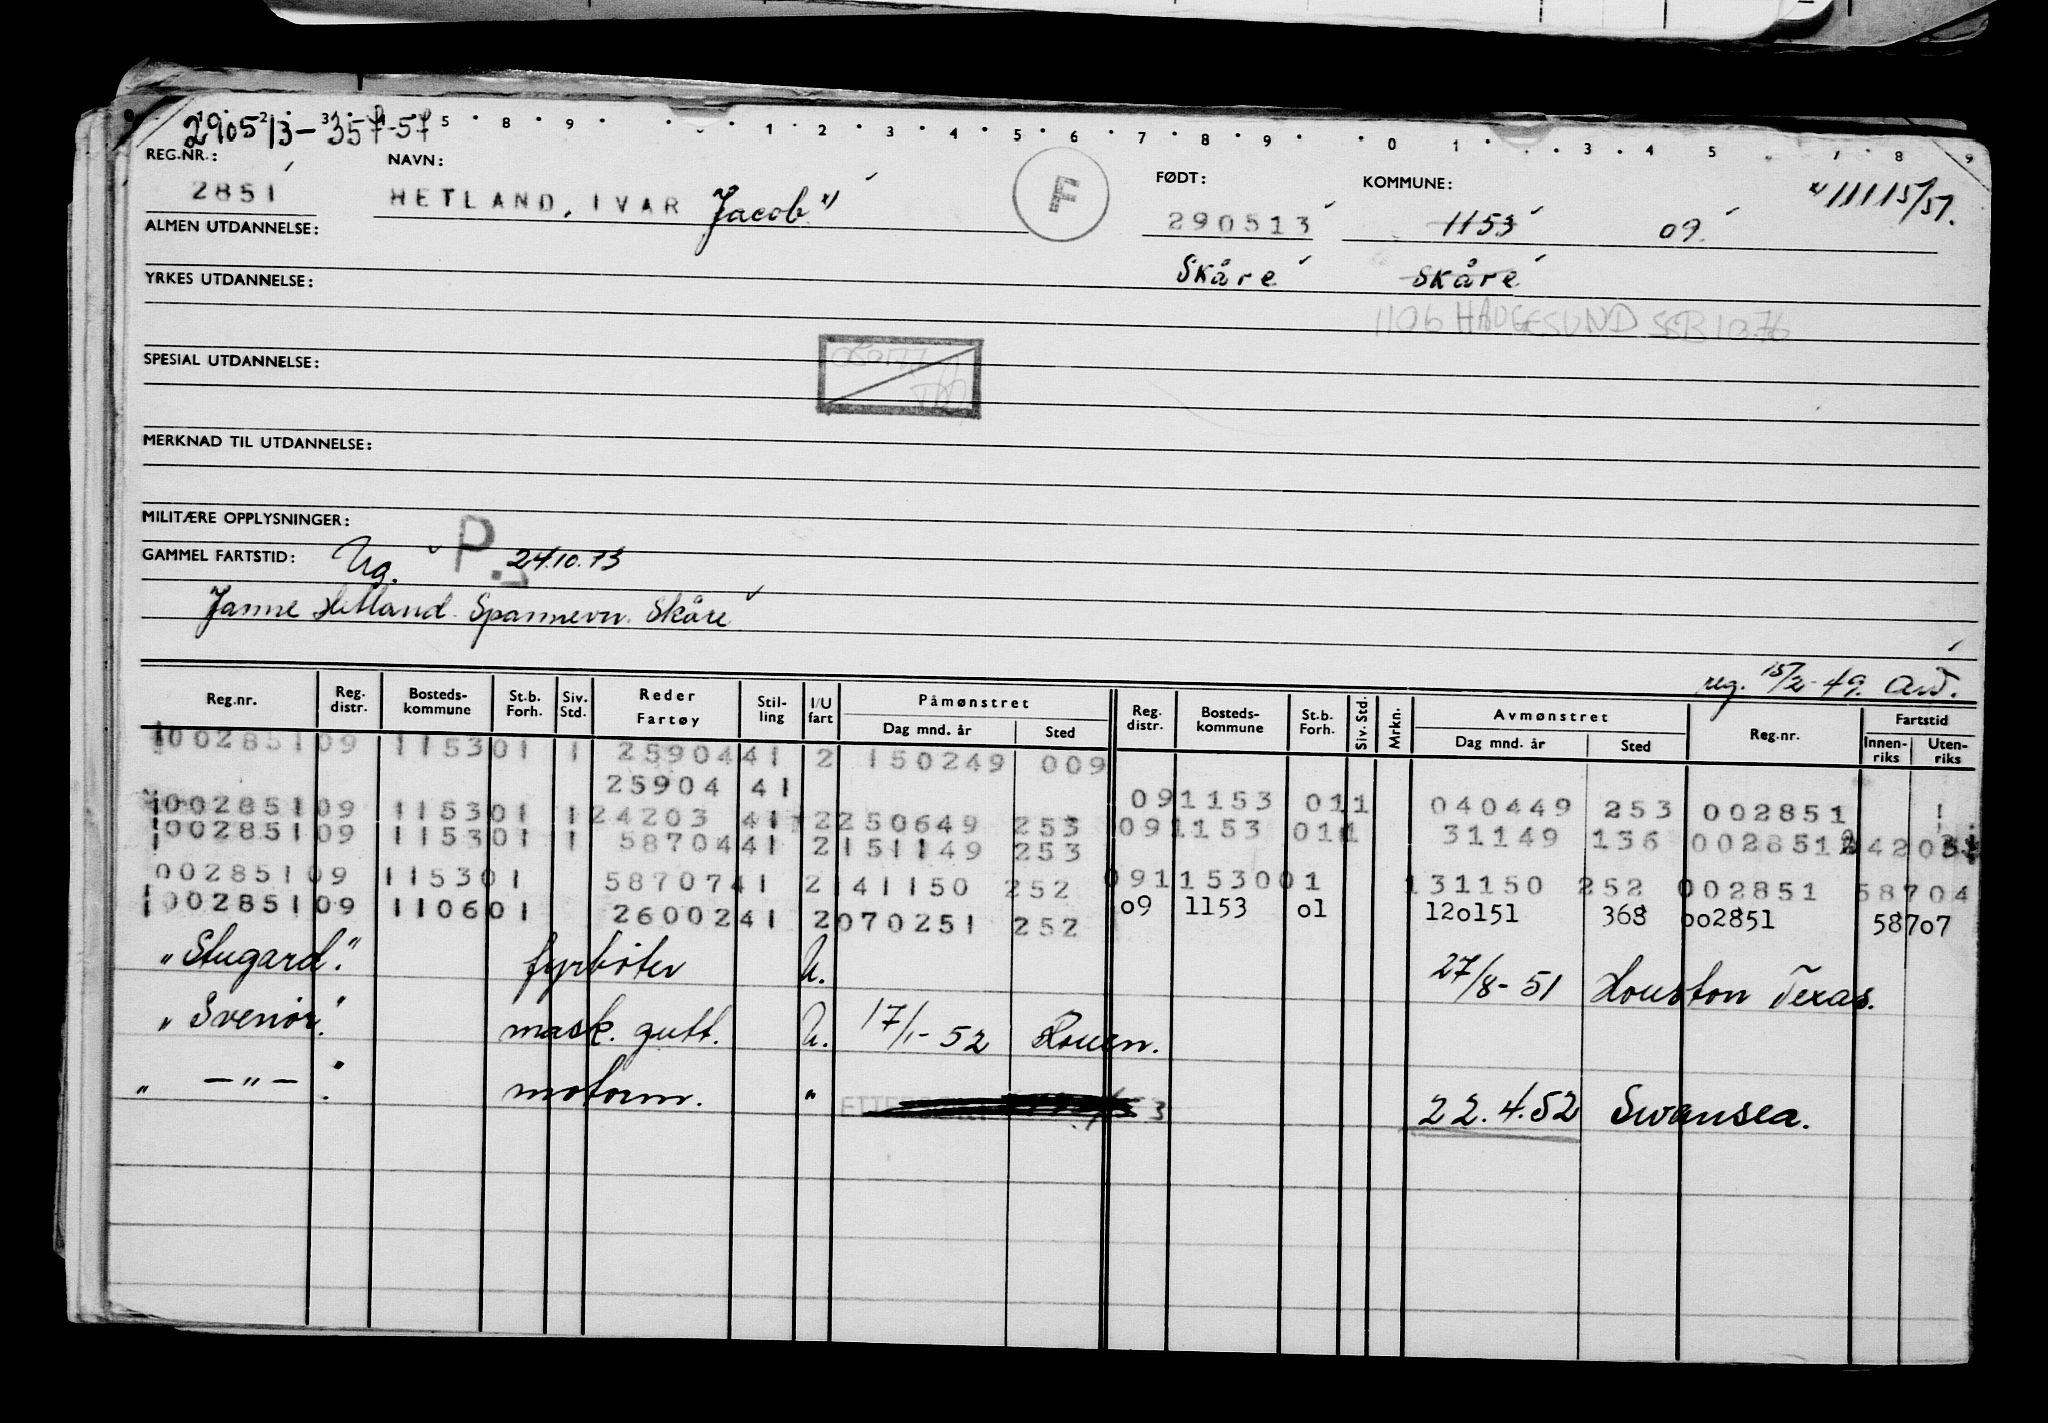 290513-35757
REG.NR.: NAVN: FØDT: KOMMUNE:
2851 HETLAND, IVAR Jacob x) F 290513 1153 09 x) 11115/51.
ALMEN UTDANNELSE:
Skåre Skåre
YRKES UTDANNELSE:
1106 HAUGESUND SSB 1076
SPESIAL UTDANNELSE:
MERKNAD TIL UTDANNELSE:
MILITÆRE OPPLYSNINGER:
GAMMEL FARTSTID: Ug. P. 24.10.73
Janne Hetland Spannevn. Skåre
reg. 15/2-49. And.
Reg.nr. Reg. distr. Bosteds- kommune St.b. Forh. Siv. Std. Reder Fartøy Stil- ling I/U fart Påmønstret Dag mnd. år Sted Reg. distr. Bosteds- kommune St.b. Forh. Siv. Std. Mrkn. Avmønstret Dag mnd. år Sted Reg.nr. Fartstid Innen- riks Uten- riks
002851 09 1153 01 1 25904 41 2 150249 009
25904 41 09 1153 01 1 040449 253 002851
002851 09 1153 01 1 24203 41 2 250649 253 09 1153 01 1 31149 136 002851 24203
002851 09 1153 01 1 58704 41 2 151149 253
002851 09 1153 01 58707 41 2 141150 252 09 1153 001 131150 252 002851 58704
002851 09 1106 01 26002 41 2 070251 252 o9 1153 o1 12o151 368 oo2851 587o7
"Stugard". fyrbøter U. 27/8-51 Houston Texas.
"Svenør". mask. gutt. U. 17/1-52 Rouen.
" —"— ". motorm. " 22.4.52 Swansea.